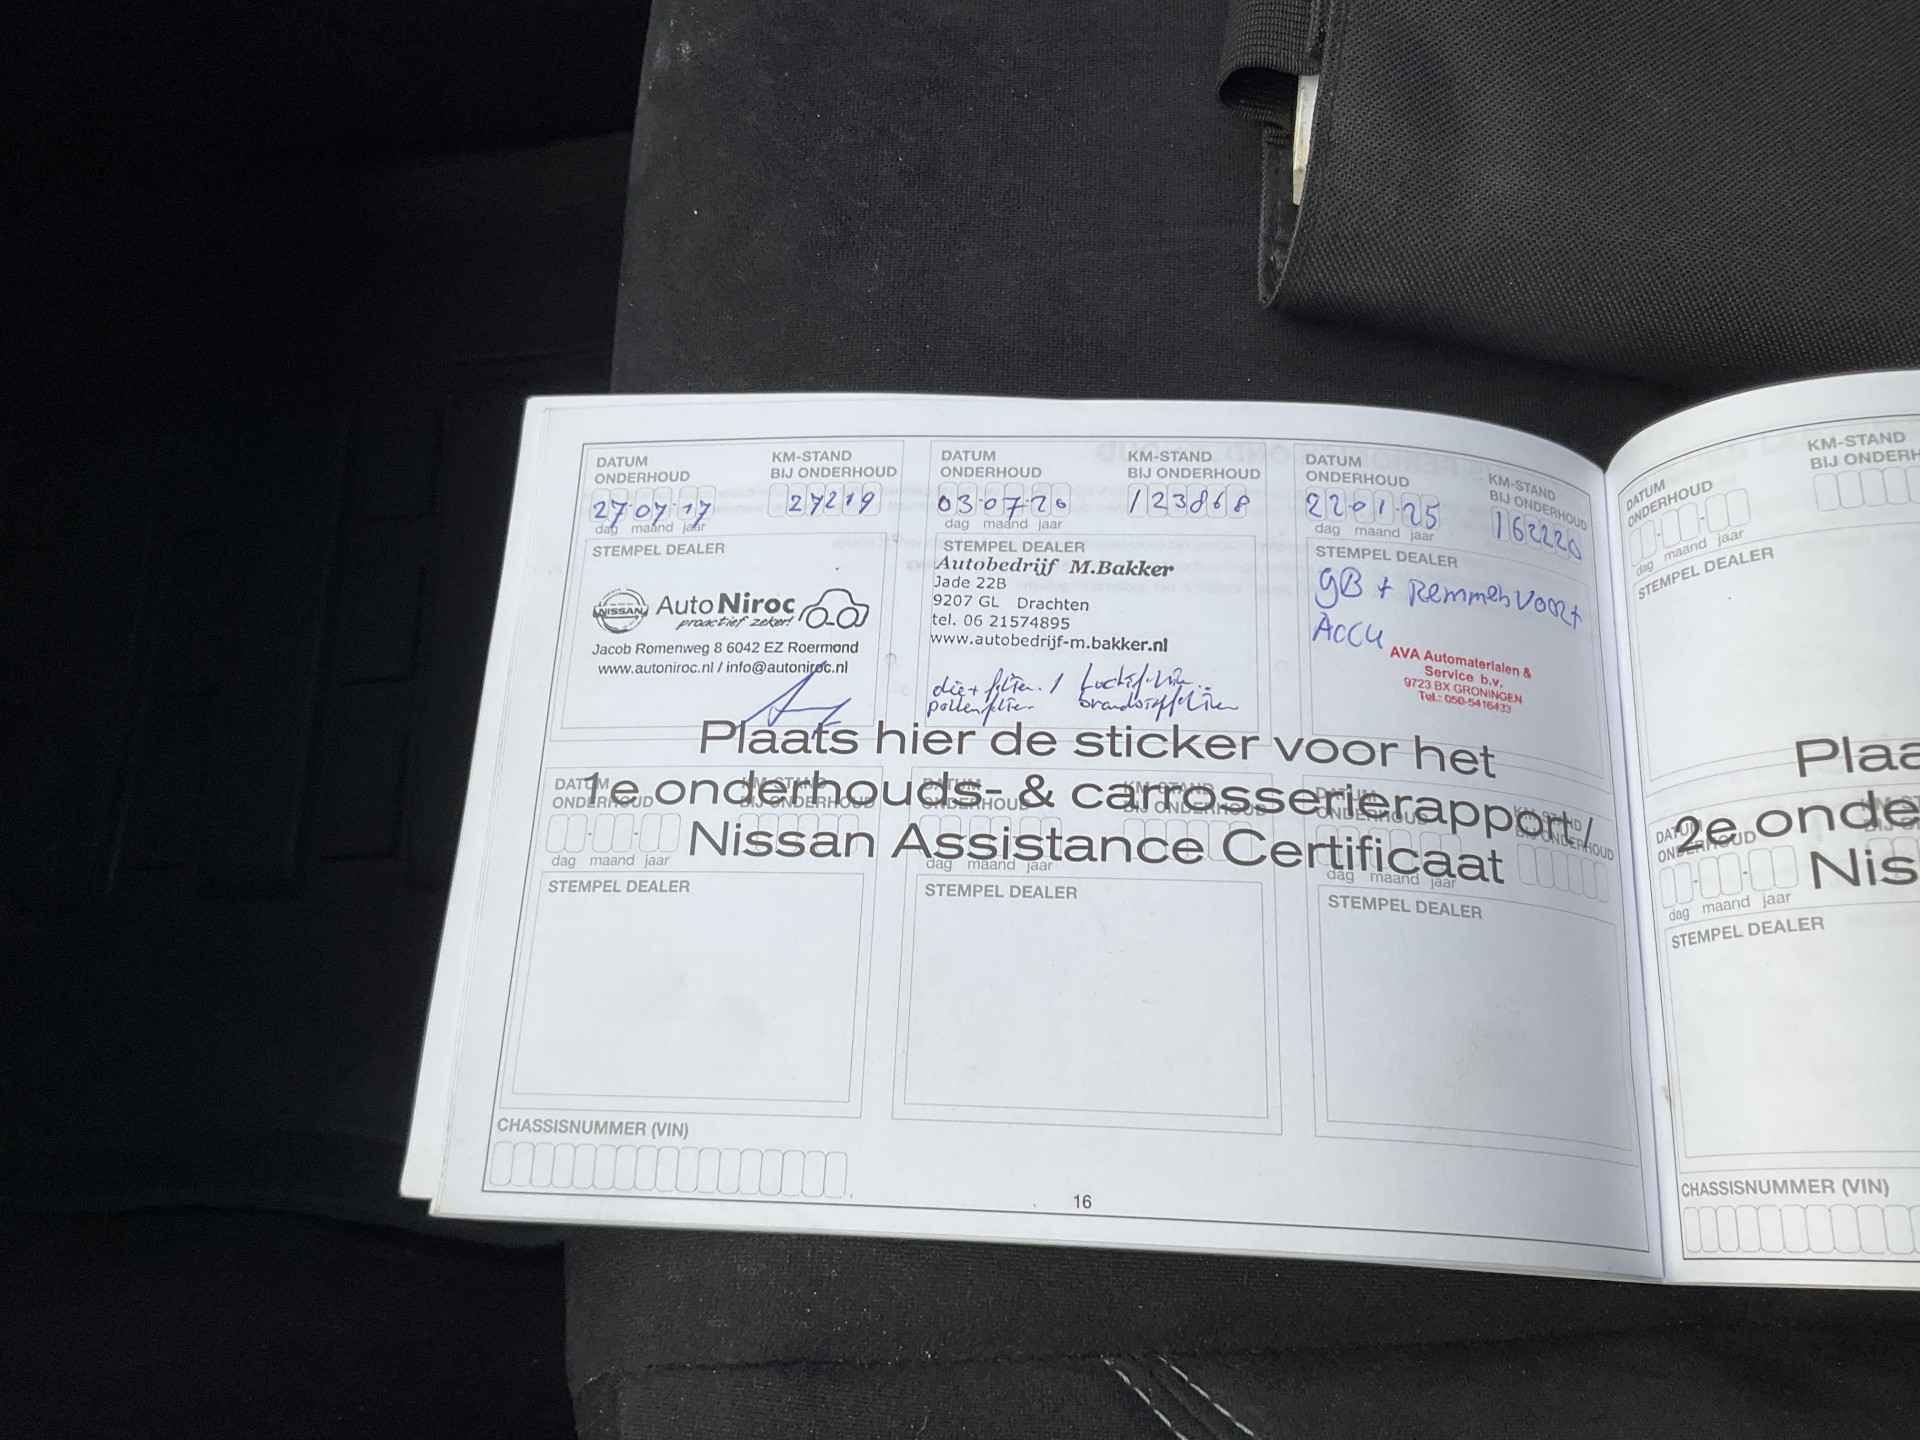 DATUM
ONDERHOUD
KM-STAND
BIJ ONDERHOUD
27-07-17
27219
dag maand jaar
STEMPEL DEALER
NISSAN
Auto Niroc
proactief zeker!
Jacob Romenweg 8 6042 EZ Roermond
www.autoniroc.nl / info@autoniroc.nl
DATUM
ONDERHOUD
KM-STAND
BIJ ONDERHOUD
03-07-20
123868
dag maand jaar
STEMPEL DEALER
Autobedrijf M.Bakker
Jade 22B
9207 GL Drachten
tel. 06 21574895
www.autobedrijf-m.bakker.nl
DATUM
ONDERHOUD
KM-STAND
BIJ ONDERHOUD
22-01-25
162220
dag maand jaar
STEMPEL DEALER
GB + Remmen voor +
Accu
AVA Automaterialen &
Service b.v.
9723 BX GRONINGEN
Tel.: 050-5416433
Plaats hier de sticker voor het
1e onderhouds- & carrosserierapport /
Nissan Assistance Certificaat
DATUM
ONDERHOUD
KM-STAND
BIJ ONDERHOUD
dag maand jaar
STEMPEL DEALER
DATUM
ONDERHOUD
KM-STAND
BIJ ONDERHOUD
dag maand jaar
STEMPEL DEALER
DATUM
ONDERHOUD
KM-STAND
BIJ ONDERHOUD
dag maand jaar
STEMPEL DEALER
CHASSISNUMMER (VIN)
16
DATUM
ONDERHOUD
KM-STAND
BIJ ONDERH
dag maand jaar
STEMPEL DEALER
Plaa
2e onde
Nis
DATUM
ONDERHOUD
dag maand jaar
STEMPEL DEALER
CHASSISNUMMER (VIN)